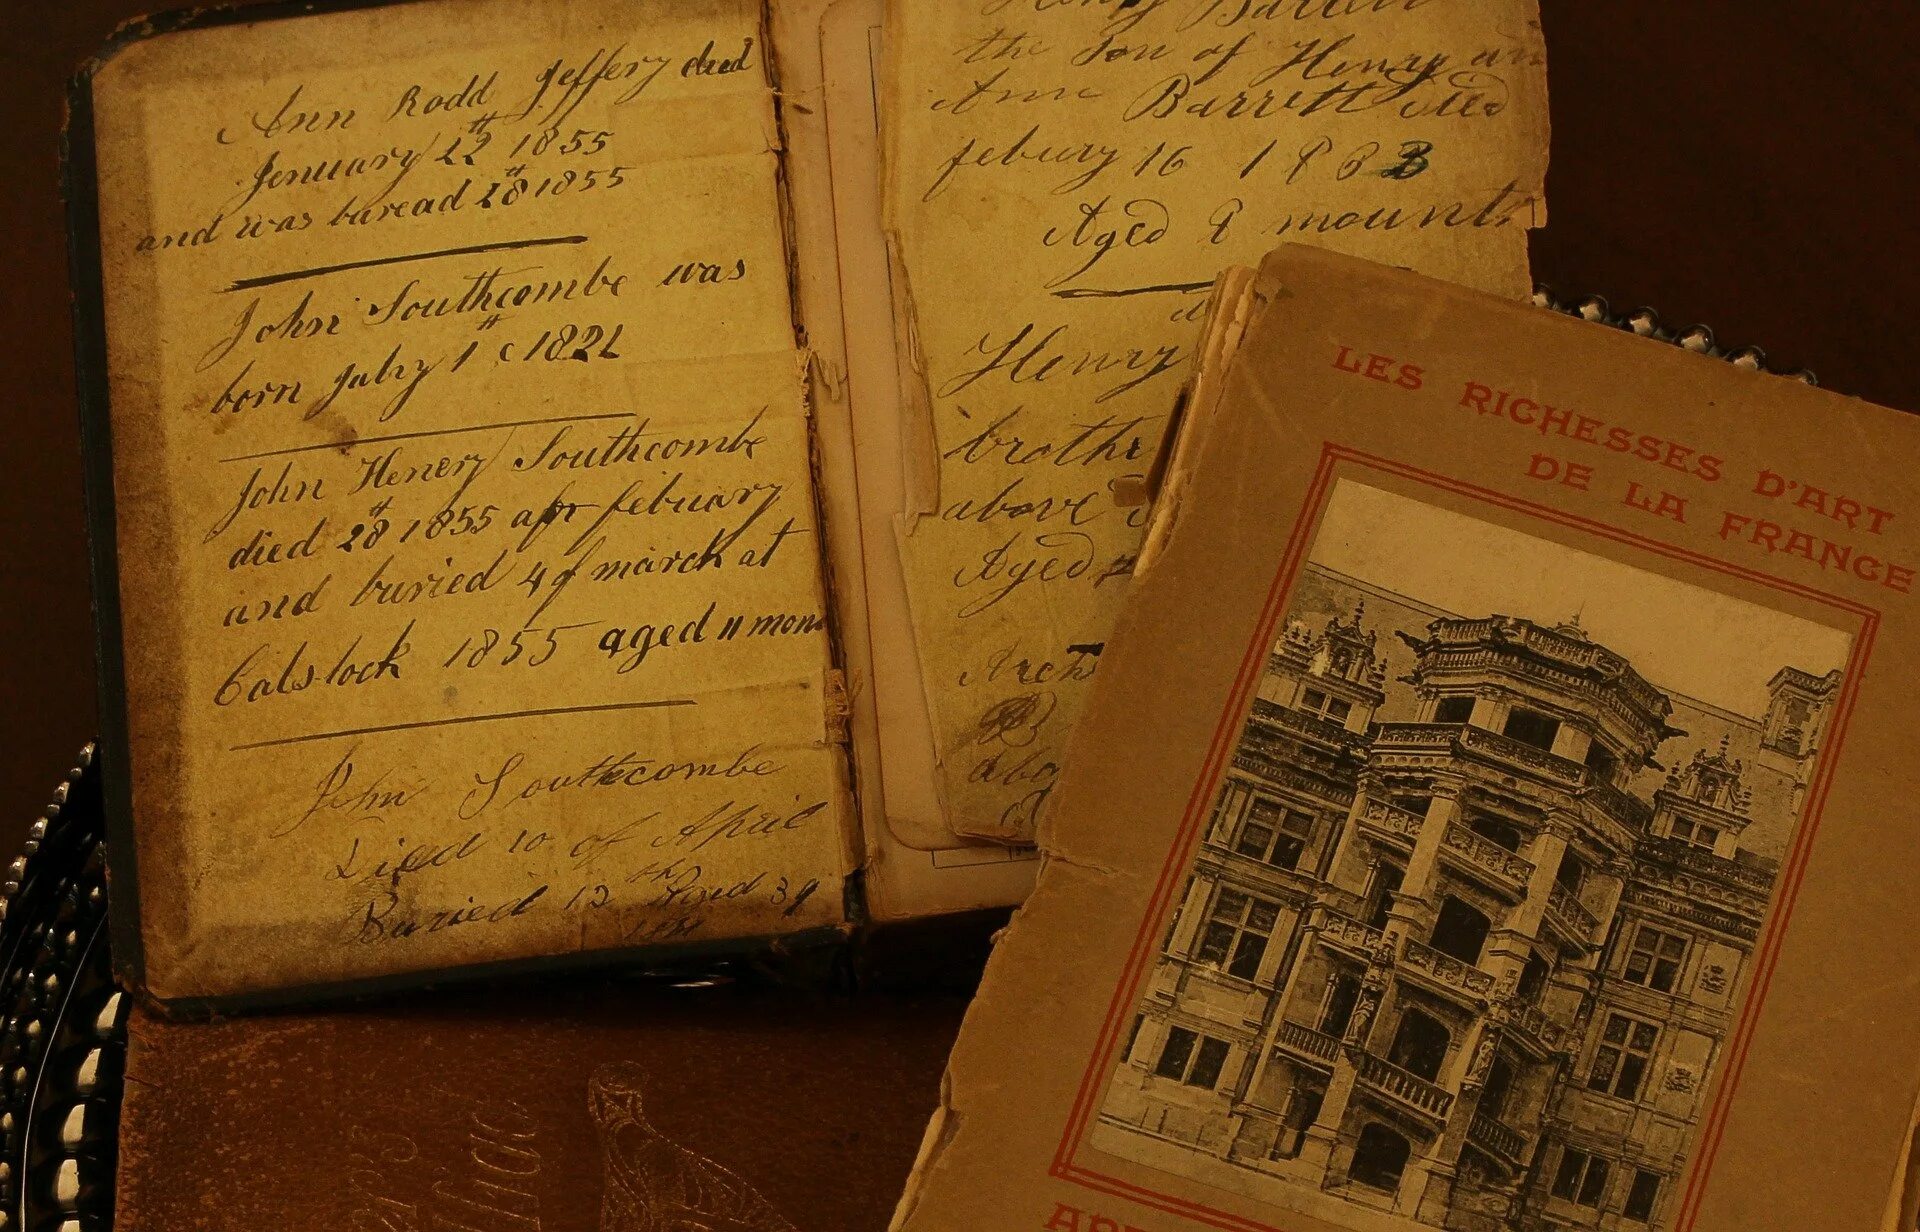 Ann Rodd Jeffery died
Jenuary 22 1855
and was buread 28 1855
John Southcombe was
born July 1 1821
John Henery Southcombe
died 28 1855 apr febuary
and buried 4 of march at
Calstock 1855 aged 11 mon
John Southcombe
Died 10 of April
Buried 13th Aged 39
Henry Barrett
the Son of Henry an
Ann Barrett died
febury 16 1883
Aged 8 mounts
Henry
brothe
above
Aged
LES RICHESSES D'ART
DE LA FRANCE